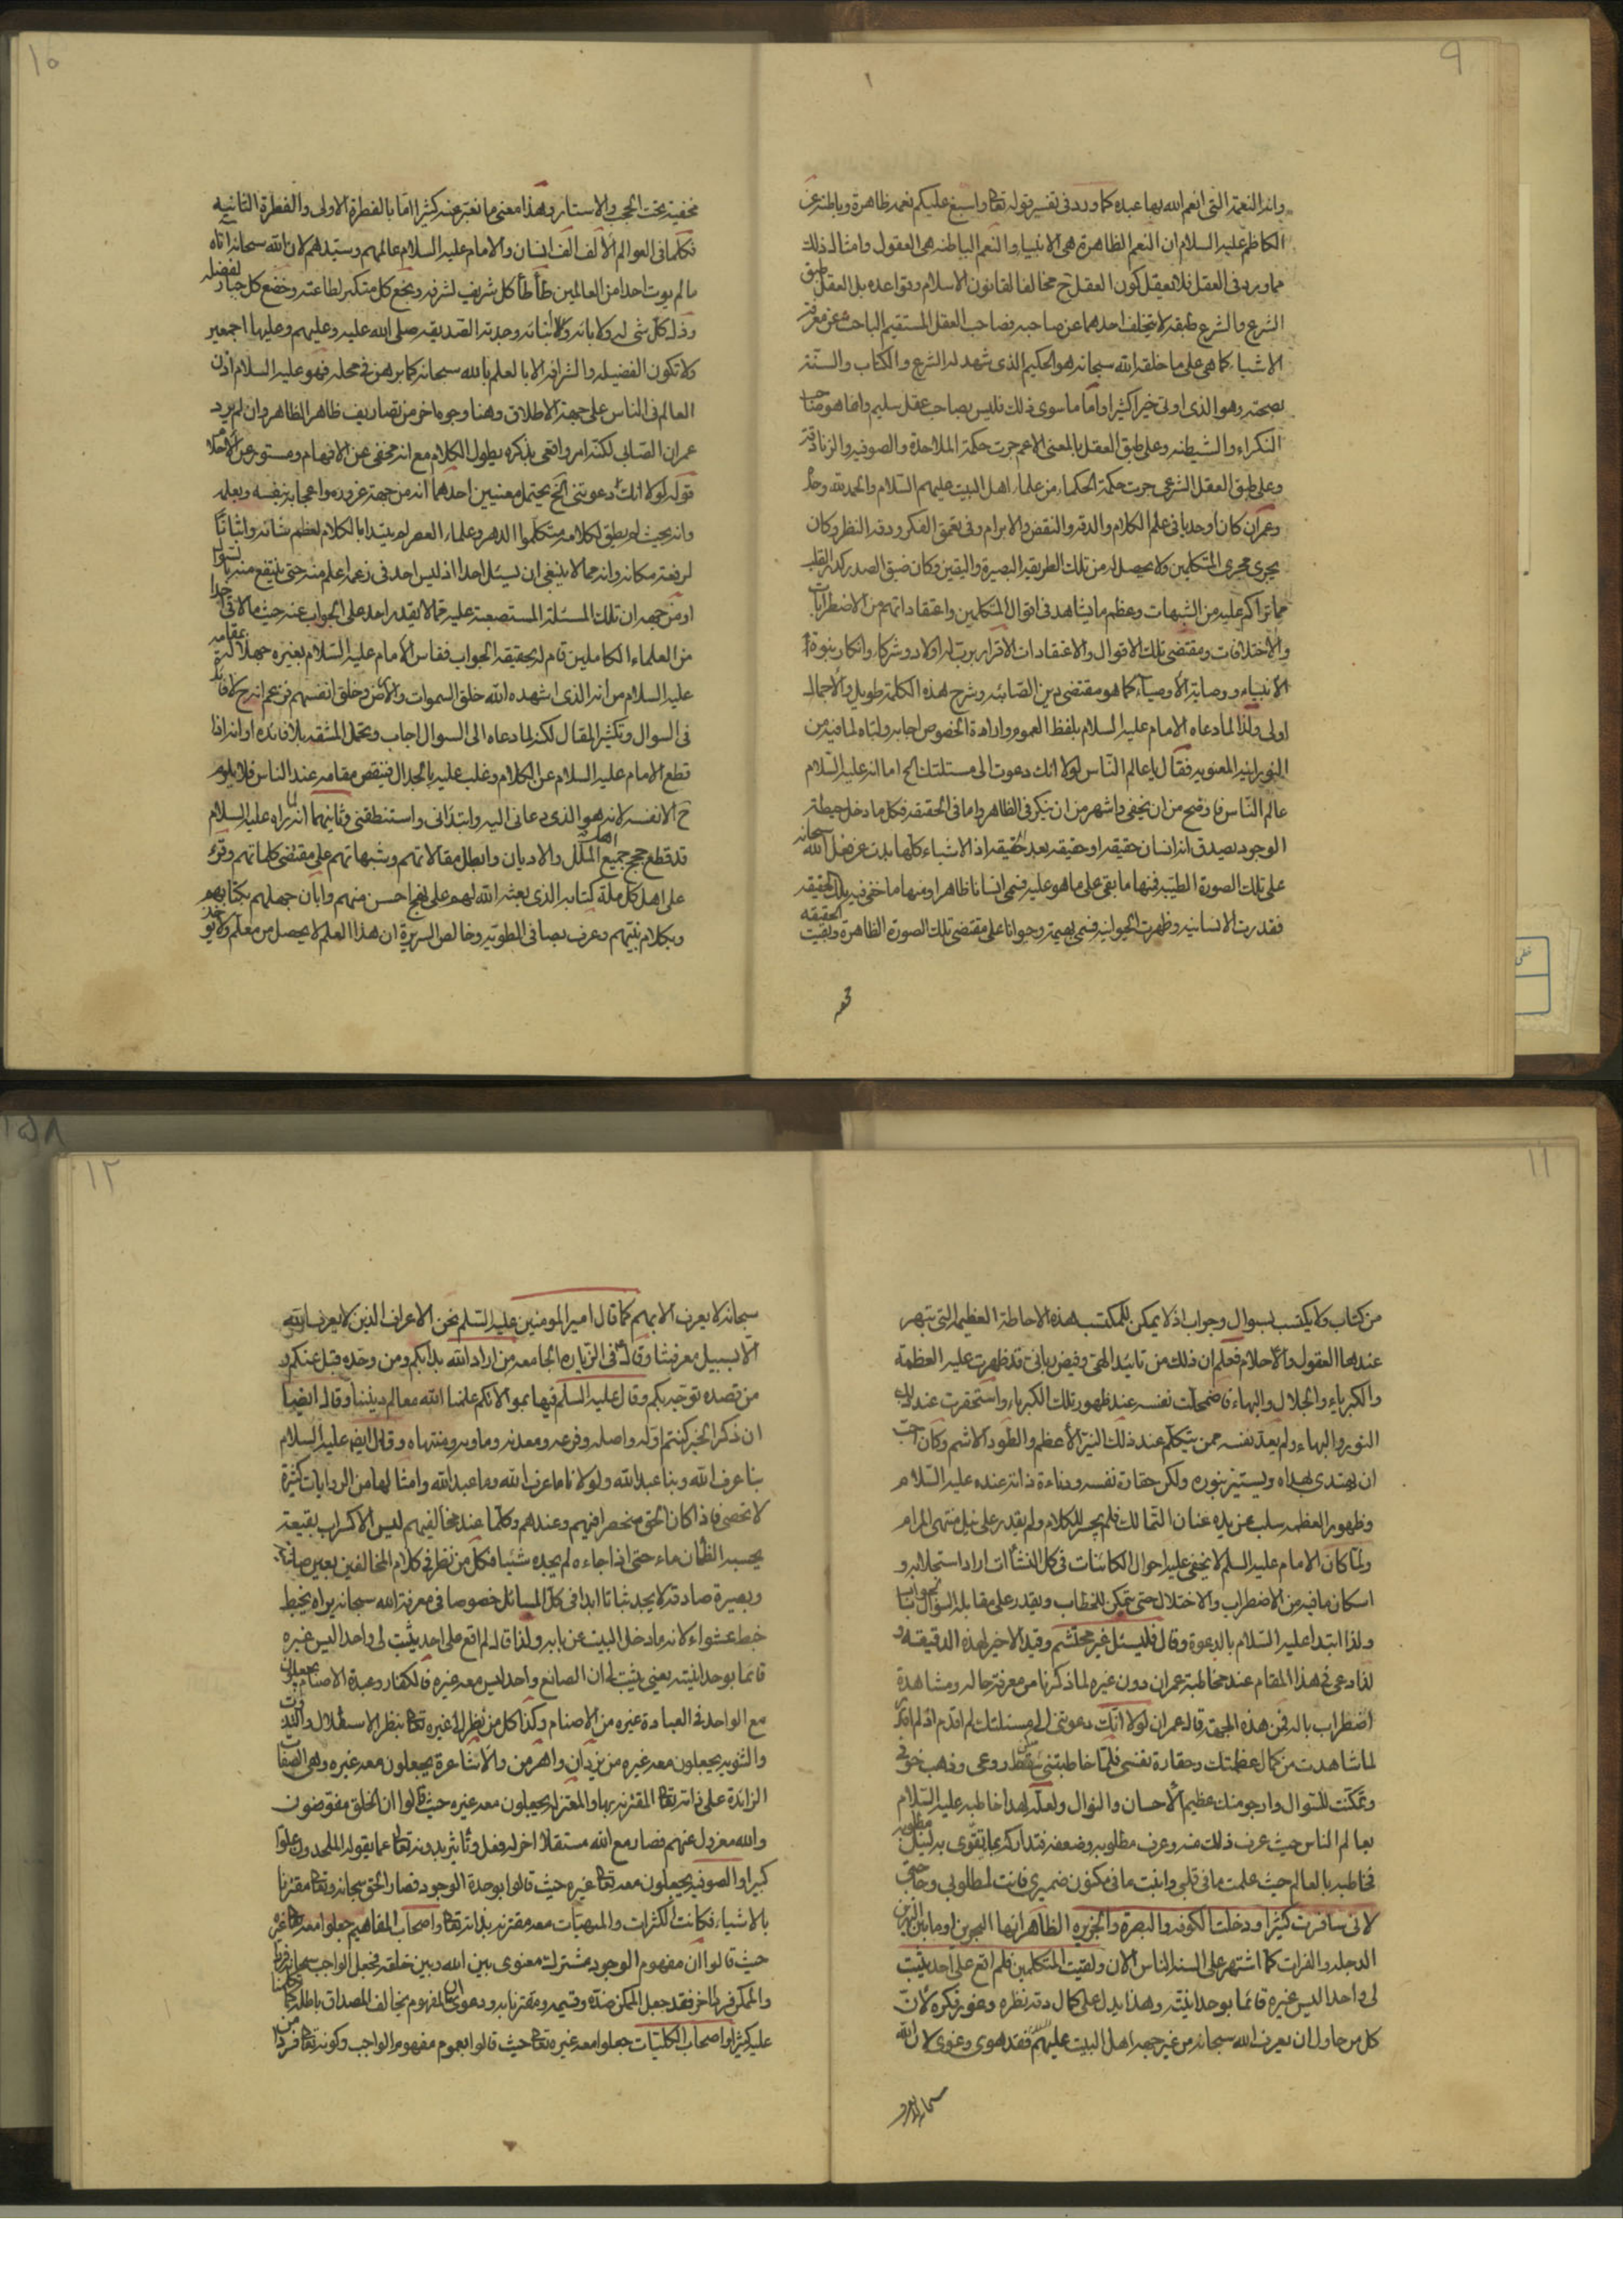 ٩
وانه النعمة التى انعم الله بها عبده كما ورد فى تفسير قوله تعا واسبغ عليكم نعمه ظاهرة وباطنة عن
الكاظم عليه السلام ان النعم الظاهرة هى الانبياء والنعم الباطنه هى العقول وامثال ذلك
مما ورد فى العقل فلا يعقل كون العقل ح مخالفا لقانون الاسلام وقواعده بل العقل طبق
الشرع والشرع طبقه لا يتخلف احدهما عن صاحبه فصاحب العقل المستقيم الباحث عن معرفة
الاشياء كما هى على ما خلقه الله سبحانه هو الحكيم الذى شهد له الشرع والكتاب والسنة
بصحته وهو الذى اوتى خيرا كثيرا واما ما سوى ذلك فليس بصاحب عقل سليم وانما هو صاحب
النكراء والشيطنه وعلى طبق العقل بالمعنى الاعم جرت حكمة الملاحدة والصوفيه والزنادقة
وعلى طبق العقل الشرعى جرت حكمة الحكماء من علماء اهل البيت عليهم السلام والحمد لله وحده
وعمران كان اوحديا فى علم الكلام والدقه والنقض والابرام وفى تعمق الفكر ودقه النظر وكان
يجرى مجرى المتكلمين ولا يحصل له من تلك الطريقه البصيرة واليقين وكان ضيق الصدر كدر القلب
مما تراكم عليه من الشبهات وعظم ما يشاهد فى اقوال المتكلمين واعتقاداتهم من الاضطرابات
والاختلافات ومقتضى تلك الاقوال والاعتقادات الاقرار برب له اولاد وشركاء وانكار نبوة
الانبياء ووصاية الاوصياء كما هو مقتضى دين الصابئه وشرح هذه الكلمة طويل والاجمال
اولى ولذا لما دعاه الامام عليه السلام بلفظ العموم وارادة الخصوص اجابه ولباه لما فيه من
النورانيه المعنويه فقال يا عالم الناس لولا انك دعوت الى مسئلتك الخ اما انه عليه السلام
عالم الناس فاوضح من ان يخفى واشهر من ان ينكر فى الظاهر واما فى الحقيقه فكل ما دخل حيطة
الوجود يصدق انه انسان حقيقه او حقيقه بعد الحقيقه اذ الاشياء كلها بدت عن فعل الله سبحانه
على تلك الصورة الطيبه فمنها ما بقى على ما هو عليه فسمى انسانا ظاهرا ومنها ما خفى فيه تلك الحقيقه
فقدرت الانسانيه وظهرت الحيوانيه فسمى بهيمة وحيوانا على مقتضى تلك الصورة الظاهرة وبقيت الحقيقه
١٥
مخفية تحت الحجب والاستار وهذا معنى ما نعبر عنه كثيرا اما بالفطرة الاولى والفطرة الثانيه
فكلما فى العوالم الالف الف انسان والامام عليه السلام عالمهم وسيدهم لان الله سبحانه اتاه
ما لم يوت احدا من العالمين طأطأ كل شريف لشرفه وبخع كل متكبر لطاعته وخضع كل جبار لفضله
وذل كل شى له ولابائه ولابنائه وجدته الصديقه صلى الله عليه وعليهم وعليها اجمعين
ولا تكون الفضيله والشرافه الا بالعلم بالله سبحانه كما برهن فى محله فهو عليه السلام اذن
العالم فى الناس على جهة الاطلاق وهنا وجوه اخر من تصاريف ظاهر الظاهر وان لم يرد
عمران الصابى لكنه امر واقعى بذكره يطول الكلام مع انه مخفى عن الافهام ومستور عن الاحلام
قوله لولا انك دعوتنى الخ يحتمل معنيين احدهما انه من جهة غروره واعجابه بنفسه وبعلمه
وانه بحيث لم يطق لكلامه متكلموا الدهر وعلماء العصر لم يبتدا بالكلام لعظم شانه واثباتا
لرفعة مكانه وانه مما لا ينبغى ان يسئل احدا اذ ليس احد فى زعمه اعلم منه حتى ينتفع منه بالسوال
او من جهه ان تلك المسئلة المستصعبة عليه مما لا يقدر احد على الجواب عنه حيث ما لاقى احدا
من العلماء الكاملين قام له بحقيقه الجواب فقاس الامام عليه السلام بغيره جهلا لمقامه
عليه السلام من انه الذى اشهده الله خلق السموات والارض وخلق انفسهم فزعم انه ح لا فائدة
فى السوال وتكثير المقال لكنه لما دعاه الى السوال اجاب وتحمل المشقه بلا فائده او انه اذا
قطع الامام عليه السلام عن الكلام وغلب عليه بالجدال فينقص مقامه عند الناس فلا يلوم
ح الا نفسه لانه هو الذى دعانى اليه وابتدانى واستنطقنى وثانيهما انه لما راه عليه السلام
قد قطع حجج جميع اهل الملل والاديان وابطل مقالاتهم وشبهاتهم على مقتضى كلماتهم وقرء
على اهل كل ملة كتابه الذى بعثه الله لهم على نهج احسن منهم وابان جهلهم بكتابهم
وبكلام نبيهم وعرف بصافى الطويه وخالص السريرة ان هذا العلم لا يحصل من معلم ولا يوخذ
١١
من كتاب ولا يكتسب بسوال وجواب اذ لا يمكن للمكتسب هذه الاحاطة العظيمه التى تبهر
عندها العقول والاحلام فعلم ان ذلك من تائيد الهى وفيض ربانى قد ظهرت عليه العظمة
والكبرياء والجلال والبهاء فاضمحلت نفسه عند ظهور تلك الكبرياء واستحقرت عند ذلك
النور والبهاء ولم يعد نفسه ممن يتكلم عند ذلك النير الاعظم والطود الاشم وكان احب
ان يهتدى بهداه ويستنير بنوره ولكن حقارة نفسه ودناءة ذاته عنده عليه السلام
وظهور العظمه سلب عن يده عنان التمالك فلم يجسر للكلام ولم يقدر على نيل منتهى المرام
ولما كان الامام عليه السلم لا يخفى عليه احوال الكائنات فى كل النشأات اراد استجلابه و
اسكان ما فيه من الاضطراب والاختلال حتى يتمكن للخطاب ويقدر على مقابلة السوال بالجواب
ولذا ابتدا عليه السلام بالدعوة وقال فليسئل غير محتشم وقيد الاخير لهذه الدقيقه و
لذا دعى فى هذا المقام عند مخاطبة عمران دون غيره لما ذكرنا من معرفة حاله ومشاهدة
اضطراب باله فمن هذه الجهة قال عمران لولا انك دعوتنى الى مسئلتك لم اقدم اذ لم اقدر
لما شاهدت من كمال عظمتك وحقارة نفسى فلما خاطبتنى سكن روعى وذهب خوفى
وتمكنت للسوال وارجو منك عظيم الاحسان والنوال ولعله لهذا خاطبه عليه السلام
بعالم الناس حيث عرف ذلك منه وعرف مطلوبه وضعفه فتداركه بما يتقوى به لنيل مطلوبه
فخاطبه بالعالم حيث علمت ما فى قلبى واثبت ما فى مكنون ضميرى فانت لمطلوبى وحاجتى
لانى سافرت كثيرا ودخلت الكوفه والبصرة والجزيره الظاهر انها البحرين او ما بين النهرين
الدجله والفرات كما اشتهر على السنة الناس الان ولقيت المتكلمين فلم اقع على احد يثبت
لى واحدا ليس غيره قائما بوحدانيته وهذا يدل على كمال دقه نظره وغور فكره لان
كل من حاول ان يعرف الله سبحانه من غير جهه اهل البيت عليهم السلم فقد هوى وغوى لان الله
سبحانه لا يعرف
١٢
سبحانه لا يعرف الا بهم كما قال امير المومنين عليه السلم نحن الاعراف الذين لا يعرف الله
الا بسبيل معرفتنا وقال فى الزيارة الجامعه من اراد الله بدا بكم ومن وحده قبل عنكم و
من قصده توجه بكم وقال عليه السلم فيها بموالاتكم علمنا الله معالم ديننا وقال ايضا
ان ذكر الخير كنتم اوله واصله وفرعه ومعدنه وماويه ومنتهاه وقال ايضا عليه السلام
بنا عرف الله وبنا عبد الله ولولانا ما عرف الله وما عبد الله وامثالها من الروايات كثيرة
لا تحصى فاذا كان الحق منحصرا فيهم وعندهم وكلما عند مخالفيهم ليس الا كسراب بقيعة
يحسبه الظمان ماء حتى اذا جاءه لم يجده شيئا فكل من نظر فى كلام المخالفين بعين صافية
وبصيرة صادقه لا يجد ثباتا ابدا فى كل المسائل خصوصا فى معرفة الله سبحانه يراه يخبط
خبط عشواء لانه ما دخل البيت من بابه ولذا قال لم اقع على احد يثبت لى واحدا ليس غيره
قائما بوحدانيته يعنى يثبت لى ان الصانع واحد ليس معه غيره فالكفار وعبدة الاصنام يجعلون
مع الواحد فى العبادة غيره من الاصنام وكذا كل من نظر الى غيره تعا بنظر الاستقلال والتذوت
والثنويه يجعلون معه غيره من يزدان واهرمن والاشاعرة يجعلون معه غيره وهى الصفات
الزائدة على ذاته تعا المقترنه بها والمعتزله يجعلون معه غيره حيث قالوا ان الخلق مفوضون
والله معزول عنهم فصار مع الله مستقلا اخر له فعل وتأثير بدونه تعالى عما يقوله الملحدون علوا
كبيرا والصوفيه يجعلون معه تعا غيره حيث قالوا بوحدة الوجود فصار الحق سبحانه وتعا مقترنا
بالاشياء فكانت الكثرات والمهيات معه مقترنه بذاته تعا واصحاب المفاهيم جعلوا معه تعا غيره
حيث قالوا ان مفهوم الوجود مشترك معنوى بين الله وبين خلقه فجعل الواجب سبحانه فردا
والممكن فردا اخر فقد جعل الممكن ضده وقسيمه ومقترنا به ودعوى ان المفهوم يخالف المصداق باطله كما تكلمنا
عليه كثيرا واصحاب الكليات جعلوا معه غيره تعا حيث قالوا بعموم مفهوم الواجب وكونه تعا فردا من